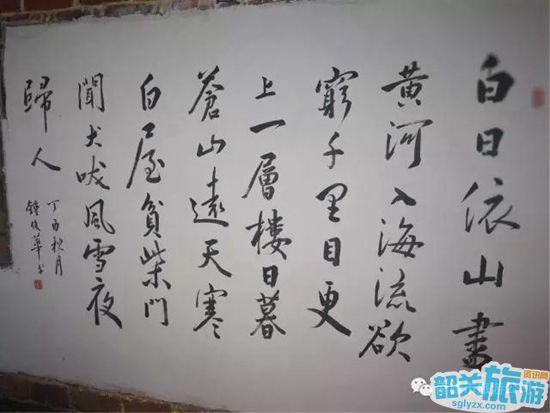 白日依山盡
黄河入海流欲
窮千里目更
上一層樓日暮
蒼山遠天寒
白屋貧柴門
聞犬吠風雪夜
歸人
丁酉秋月
鐘俊華书
韶关旅游
资讯网
sglyzx.com